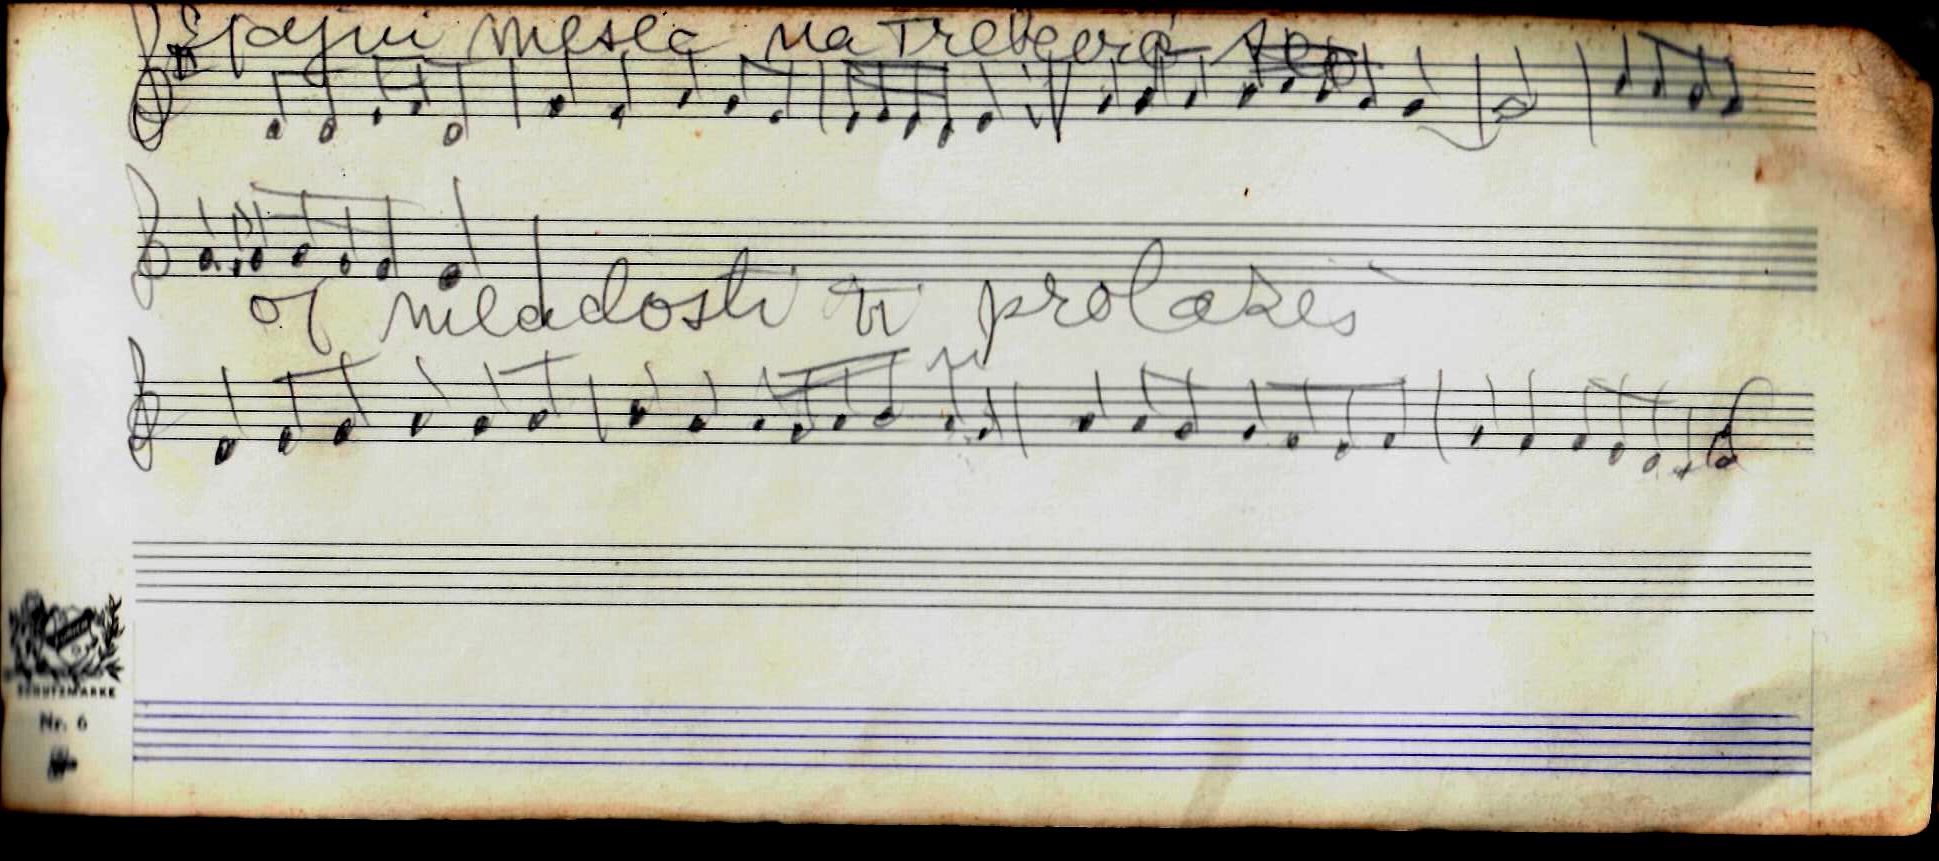 Sjajni mesec na Trebević se
oj mladosti ti prolaziš
SCHUTZMARKE
Nr. 6